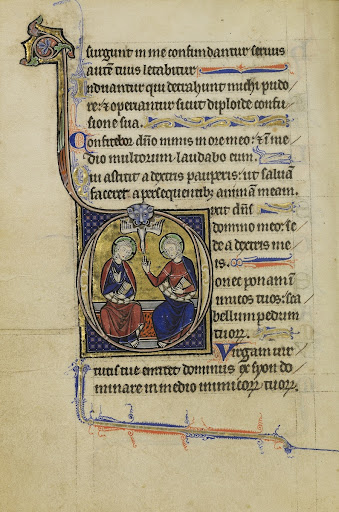 surgunt in me confundantur seruus
autē tuus letabitur
Induantur qui detrahunt michi pudo
re: & operiantur sicut diploide confu
sione sua.
Confitebor dn̄o nimis in ore meo: & ī me
dio multorum laudabo eum.
Qui astitit a dextris pauperis: ut saluā
faceret a persequentib; animam meam.
Dixit dn̄s
domino meo: se
de a dextris me
is.
Donec ponam ī
imicos tuos: sca
bellum pedum
tuorꝝ.
Virgam uir
tutis tue emittet dominus ex syon do
minare in medio inimicorꝝ tuorꝝ.